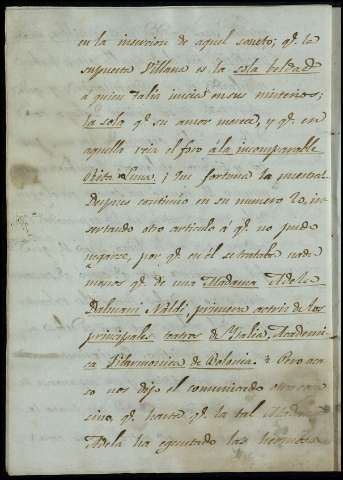 en la insercion de aquel soneto; qᵉ. la
supuesta Villana es la sola beldad
á quien Talia inicia en sus misterios;
la sola qᵉ su amor merece, y qᵉ. en
aquella veia el foro á la incomparable
Rita Luna. ¡ Que fortuna la nuestra!
Despues continúo en su numero 20, in-
sertando otro articulo á qᵉ. no pude
negarse, por qᵉ. en él se trataba nada
menos qᵉ. de una Madama Adela
Dalmani Naldi, primera actriz de los
principales teatros de Italia, Academi-
ca Filarmonica de Bolonia. Pero aca-
so nos dijo el comunicado otra
sino, qᵉ. parte qᵉ. la tal
Adela ha egecutado las hermosa